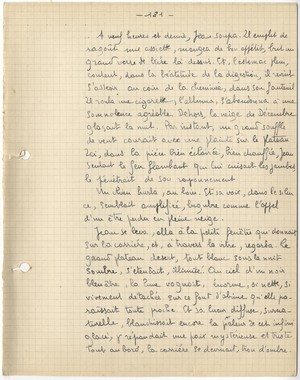 - 181 -
A neuf heures et demie, Jean soupa. Il emplit de
ragoût une assiette, mangea de bon appétit, but un
grand verre de bière là dessus. Et, l'estomac plein,
content, dans la béatitude de la digestion, il revint
s'asseoir au coin de la cheminée, dans son fauteuil.
Il roula une cigarette, l'alluma, s'abandonna à une
somnolence agréable. Dehors, la neige de Décembre
glaçait la nuit. Par instant, un grand souffle
de vent courait avec une plainte sur le plateau.
Ici, dans la pièce bien éclairée, bien chauffée, Jean
sentait le feu flambant qui lui cuisait les jambes
le pénétrait de son rayonnement.
Un chien hurla, au loin. Et sa voix, dans le silen
ce, semblait amplifiée, lugubre comme l'appel
d'un être perdu en pleine neige.
Jean se leva, alla à la petite fenêtre qui donnait
sur la carrière, et, à travers la vitre, regarda. Le
grand plateau désert, tout blanc sous la nuit
sombre, s'étendait, illimité. Au ciel d'un noir
bleuâtre, la lune voguait, énorme, si nette, si
vivement détachée sur ce fond d'abîme qu'elle pa-
raissait toute proche. Et sa lueur diffuse, surna-
turelle, blanchissait encore la pâleur de cet infini
glacé, y répandait une paix mystérieuse et triste.
Tout au bord, la carrière se devinait, trou d'ombre